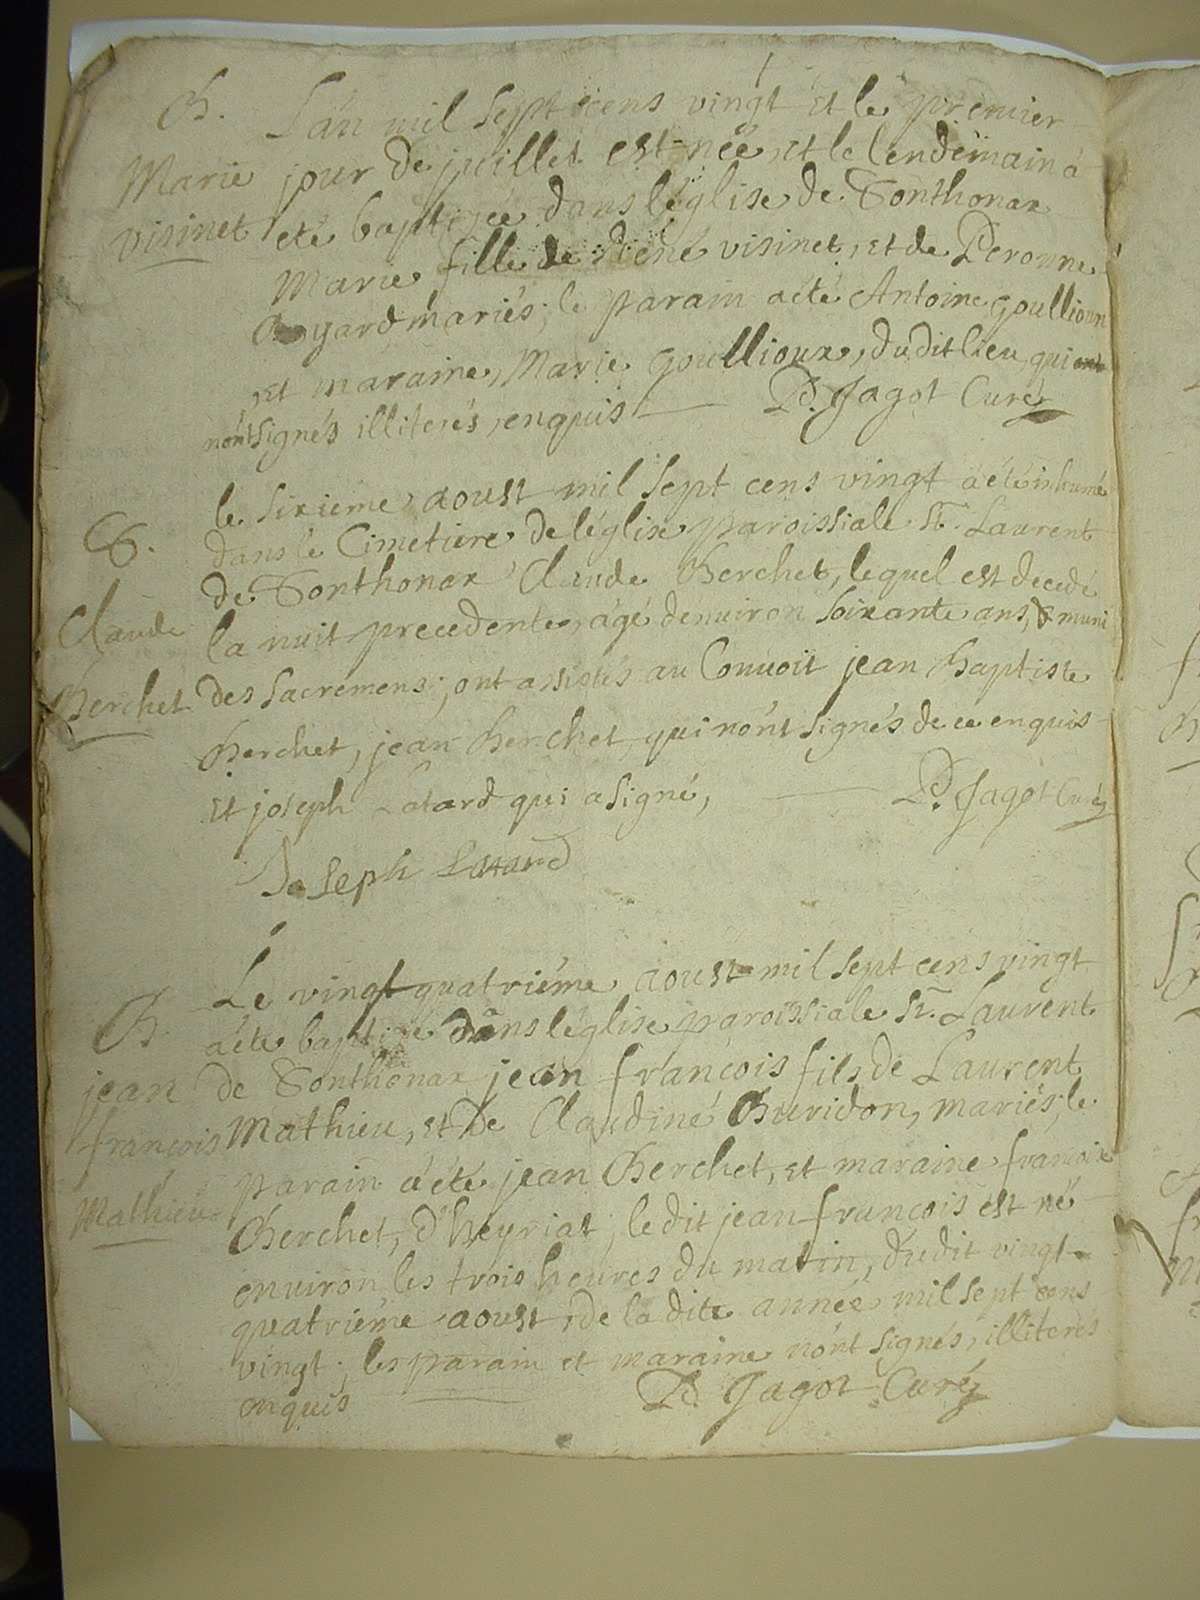 B.
Marie
visinet
L'an mil sept cens vingt et le premier
jour de juillet est née, et le lendemain à
eté baptizée dans l'église de Sonthonax
Marie fille de visinet, et de Peronne
mariés; le parain a été Antoine goullioux
et maraine, Marie goullioux, dudit lieu, qui
n'ont signés illiterés, enquis P. Jagot Curé
S.
Claude
Berchet
le sixieme aoust mil sept cens vingt a été inhumé
dans le Cimetiere de l'église paroissiale St. Laurent
de Sonthonax Claude Berchet, lequel est decedé
la nuit precedente, agé denviron soixante ans, & muni
des sacremens; ont assistés au Convoit jean Baptiste
Berchet, jean Berchet qui n'ont signés de ce enquis
et joseph Latard qui a signé, P. Jagot Curé
Joseph Latard
B.
jean
françois
Mathieu
Le vingt quatriéme aoust mil sept cens vingt
a été baptizé dans l'église paroissiale St. Laurent
de Sonthonax jean françois fils de Laurent
Mathieu, et de Claudine Buridon, mariés; le
parain a été jean Berchet, et maraine françoise
Berchet, d'heyriat; le dit jean françois est né
environ les trois heures du matin, dudit vingt
quatriéme aoust de la dite année mil sept cens
vingt; les parain et maraine n'ont signés, illiterés
enquis P. Jagot Curé